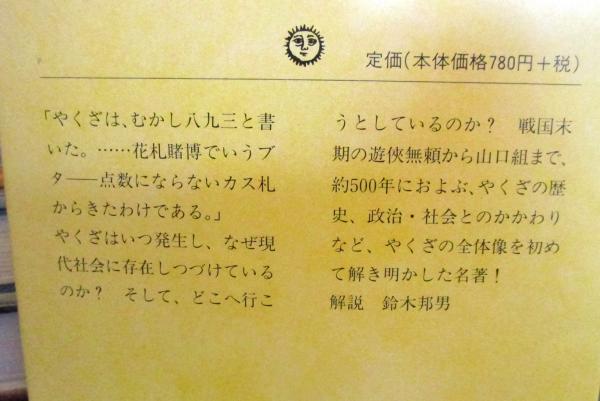 定価(本体価格780円+税)
「やくざは、むかし八九三と書
いた。……花札賭博でいうブ
タ――点数にならないカス札
からきたわけである。」
やくざはいつ発生し、なぜ現
代社会に存在しつづけている
のか？　そして、どこへ行こ
うとしているのか？　戦国末
期の遊俠無頼から山口組まで、
約500年におよぶ、やくざの歴
史、政治・社会とのかかわり
など、やくざの全体像を初め
て解き明かした名著！
解説　鈴木邦男